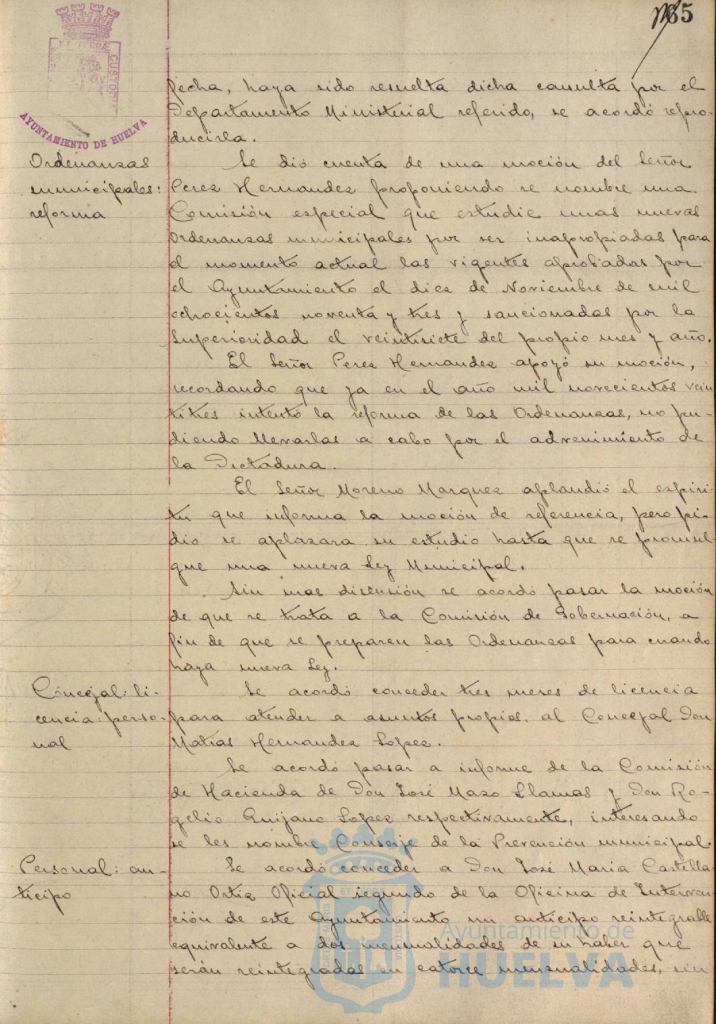 65
AYUNTAMIENTO DE HUELVA
fecha, haya sido resuelta dicha consulta por el
Departamento Ministerial referido, se acordó repro-
ducirla.
Ordenanzas
municipales:
reforma
Se dió cuenta de una moción del Señor
Perez Hernandez proponiendo se nombre una
Comisión especial que estudie unas nuevas
Ordenanzas municipales por ser inapropiadas para
el momento actual las vigentes aprobadas por
el Ayuntamiento el dice de Noviembre de mil
ochocientos noventa y tres y sancionadas por la
Superioridad el veintisiete del propio mes y año.
El Señor Perez Hernandez apoyó su moción,
recordando que ya en el año mil novecientos vein
titres intentó la reforma de las Ordenanzas, no pu-
diendo llevarlas a cabo por el advenimiento de
la Dictadura.
El Señor Moreno Marquez aplaudió el espiri-
tu que informa la moción de referencia, pero pi-
dio se aplazara su estudio hasta que se promul-
gue una nueva Ley Municipal.
Sin mas discusión se acordó pasar la moción
de que se trata a la Comisión de Gobernación, a
fin de que se preparen las Ordenanzas para cuando
haya nueva Ley.
Concejal: li-
cencia: perso-
nal
Se acordó conceder tres meses de licencia
para atender a asuntos propios. al Concejal Don
Matías Hernandez Lopez.
Se acordó pasar a informe de la Comisión
de Hacienda de Don José Mazo Llamas y Don Ro-
gelio Quijano Lopez respectivamente, interesando
se les nombre Conserje de la Prevención municipal.
Personal: an-
ticipo
Se acordó conceder a Don José Maria Castella-
no Ortiz Oficial segundo de la Oficina de Interven-
ción de este Ayuntamiento un anticipo reintegrable
equivalente a dos mensualidades de su haber que
serán reintegradas en catorce mensualidades, sin
Ayuntamiento de
HUELVA